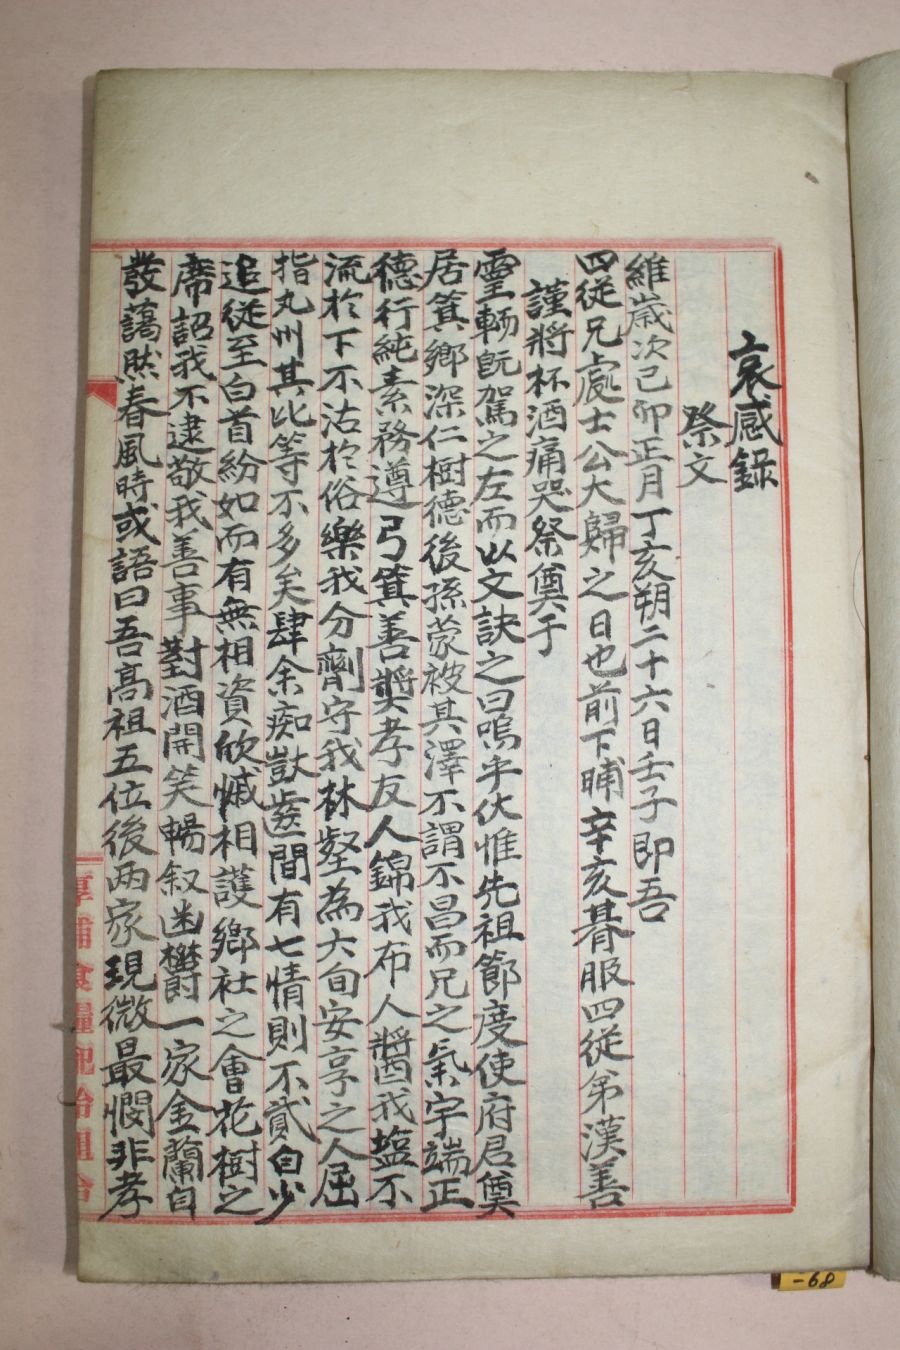 哀感錄
祭文
維歲次己卯正月丁亥朔二十六日壬子即吾
四從兄處士公大歸之日也前下晡辛亥朞服四從弟漢善
謹將杯酒痛哭祭奠于
靈輀旣駕之左而以文訣之曰嗚乎伏惟先祖節度使府君奠
居箕鄉深仁樹德後孫蒙被其澤不謂不昌而兄之氣宇端正
德行純素務遵弓箕善奬孝友人錦我布人醬我塩不
流於下不沽於俗樂我分劑守我林壑為大旬安享之人屈
指丸州其比等不多矣肆余痴獃齒間有七情則不貳自少
追從至白首紛如而有無相資欣慽相護鄉社之會花樹之
席詔我不逮敬我善事對酒開笑暢叙幽欝一家金蘭自
發藹然春風時或語曰吾高祖五位後兩家現微最憫非孝
厚浦食糧配給組合